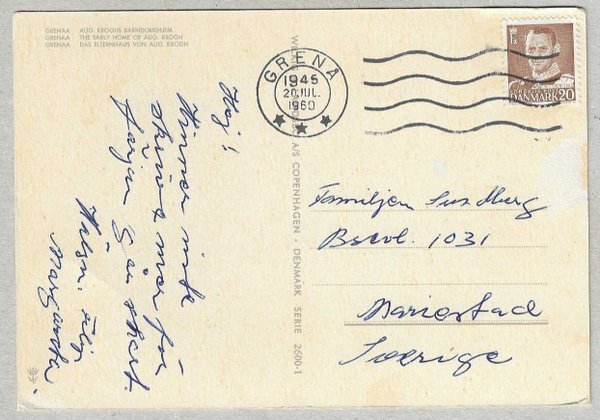 GRENAA AUG. KROGHS BARNDOMSHJEM
GRENAA THE EARLY HOME OF AUG. KROGH
GRENAA DAS ELTERNHAUS VON AUG. KROGH
Hej!
Hinner inte
skriva mer för
färjan går strax.
Hälsn.
Margareta
A/S COPENHAGEN - DENMARK SERIE 2600-1
GRENÅ
1945
20.JUL.
1960
DANMARK 20
Familjen Sundberg
Boxvl. 1031
Mariestad
Sverige